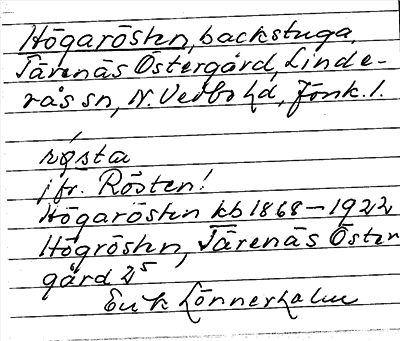 Högarösten, backstuga,
Tärenäs Östergård, Linde-
rås sn, N. Vedbo hd, Jönk. l.
røsta
jfr. Rösten!
Högarösten kb 1868-1922
Högrösten, Tärenäs Öster
gård 2⁵
Erik Lönnerholm